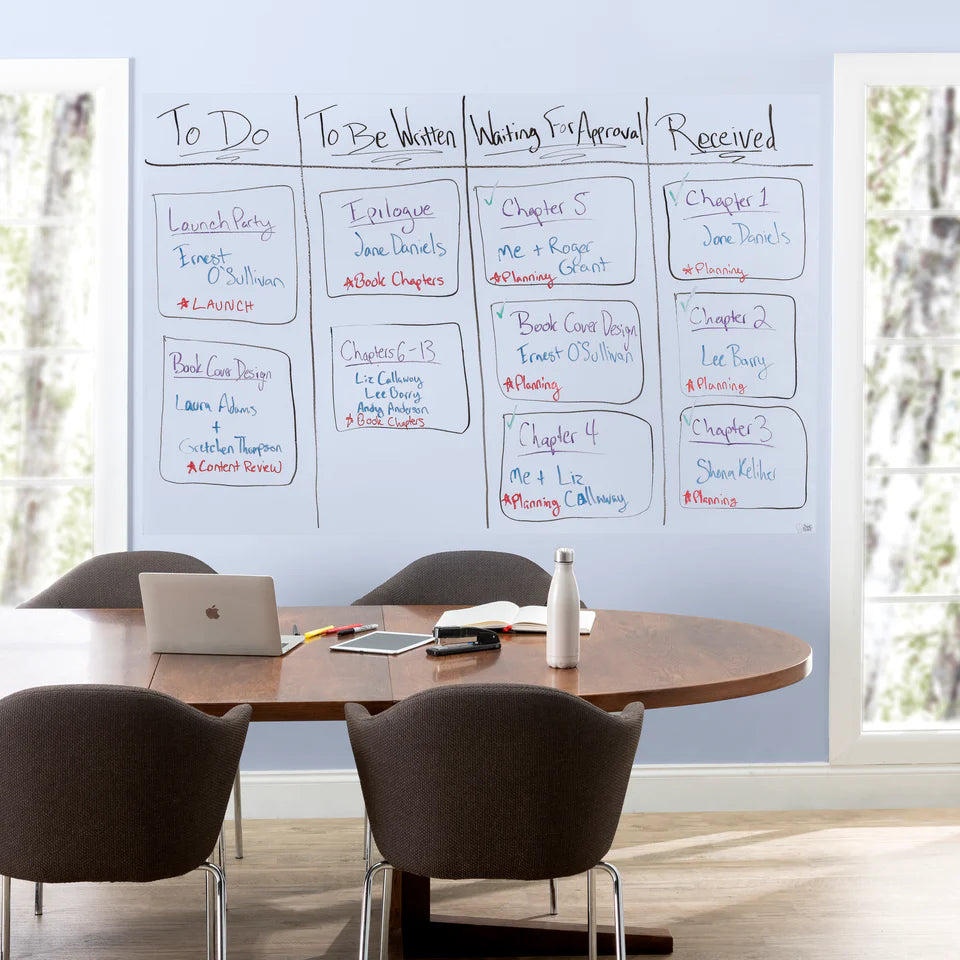 To Do
Launch Party
Ernest
O'Sullivan
*LAUNCH
Book Cover Design
Laura Adams
+
Gretchen Thompson
*Content Review
To Be Written
Epilogue
Jane Daniels
*Book Chapters
Chapters 6-13
Liz Callaway
Lee Barry
Andy Anderson
*Book Chapters
Waiting For Approval
Chapter 5
Me + Roger
Grant
*Planning
Book Cover Design
Ernest O'Sullivan
*Planning
Chapter 4
Me + Liz
Callaway
*Planning
Received
Chapter 1
Jane Daniels
*Planning
Chapter 2
Lee Barry
*Planning
Chapter 3
Shona Keliher
*Planning